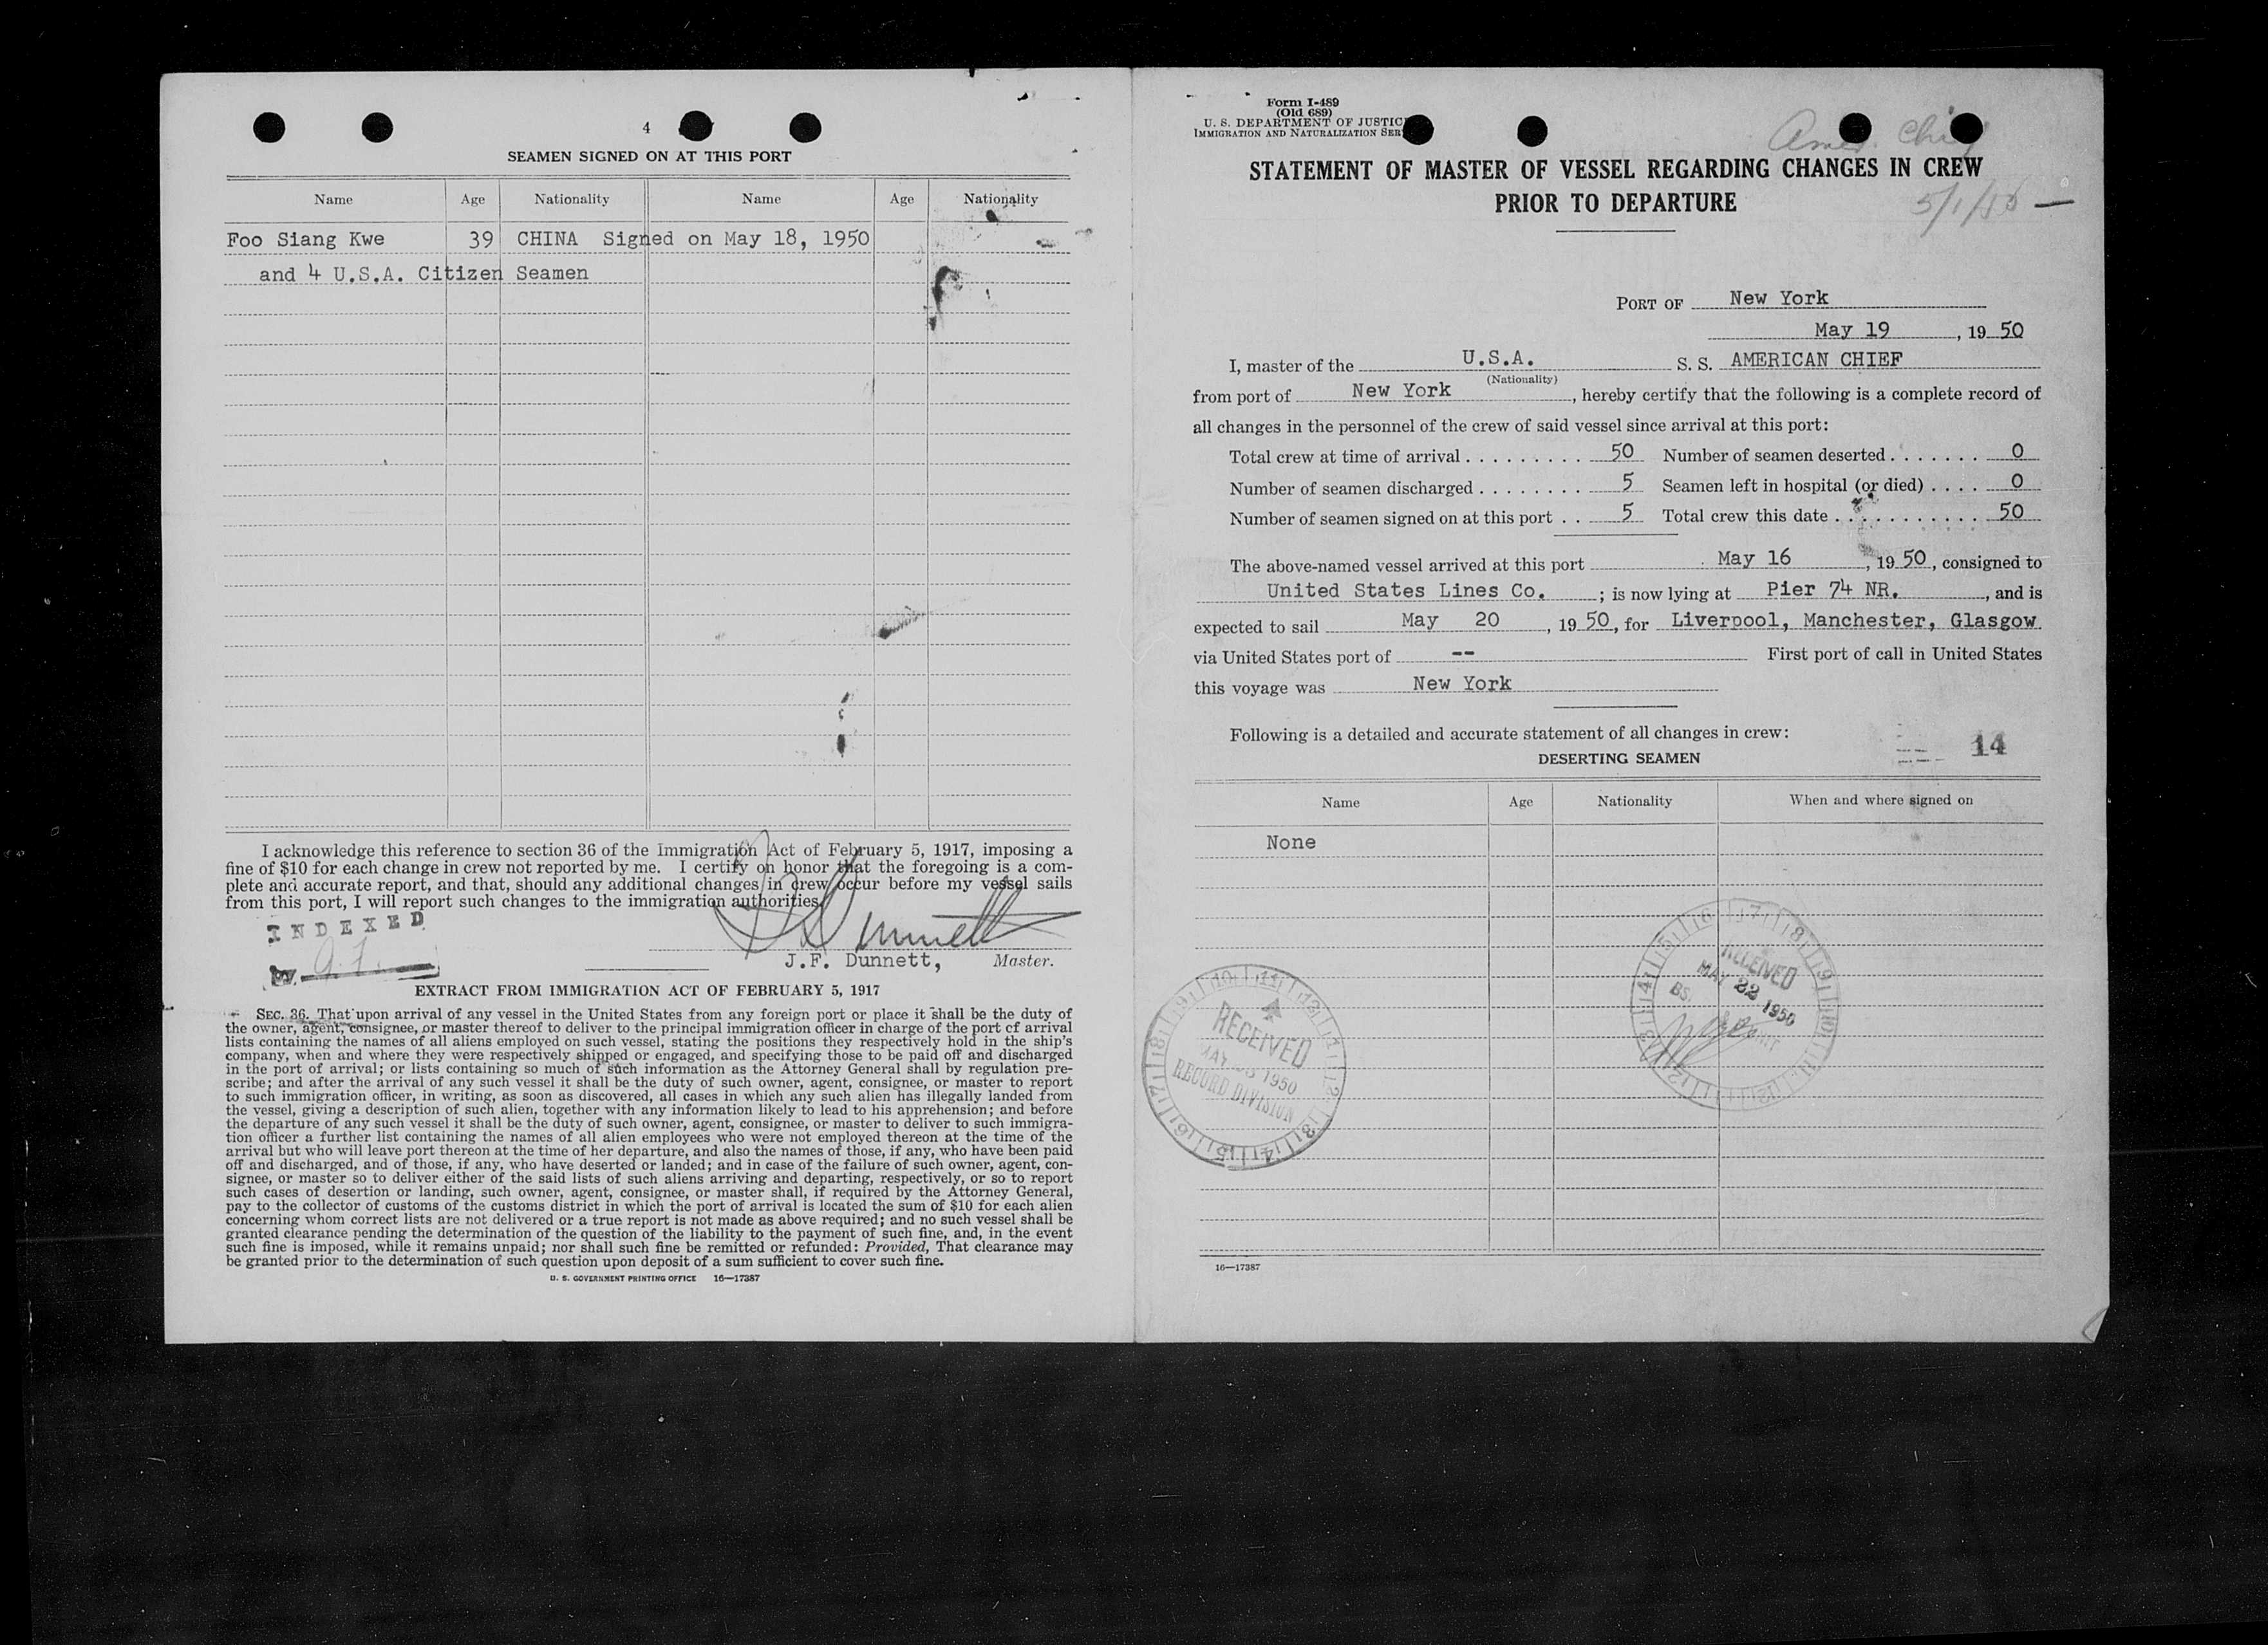 4
SEAMEN SIGNED ON AT THIS PORT
Name Age Nationality Name Age Nationality
Foo Siang Kwe 39 CHINA Signed on May 18, 1950
and 4 U.S.A. Citizen Seamen
I acknowledge this reference to section 36 of the Immigration Act of February 5, 1917, imposing a
fine of $10 for each change in crew not reported by me. I certify on honor that the foregoing is a com-
plete and accurate report, and that, should any additional changes in crew occur before my vessel sails
from this port, I will report such changes to the immigration authorities.
INDEXED
J.F. Dunnett, Master.
EXTRACT FROM IMMIGRATION ACT OF FEBRUARY 5, 1917
SEC. 36. That upon arrival of any vessel in the United States from any foreign port or place it shall be the duty of
the owner, agent, consignee, or master thereof to deliver to the principal immigration officer in charge of the port of arrival
lists containing the names of all aliens employed on such vessel, stating the positions they respectively hold in the ship's
company, when and where they were respectively shipped or engaged, and specifying those to be paid off and discharged
in the port of arrival; or lists containing so much of such information as the Attorney General shall by regulation pre-
scribe; and after the arrival of any such vessel it shall be the duty of such owner, agent, consignee, or master to report
to such immigration officer, in writing, as soon as discovered, all cases in which any such alien has illegally landed from
the vessel, giving a description of such alien, together with any information likely to lead to his apprehension; and before
the departure of any such vessel it shall be the duty of such owner, agent, consignee, or master to deliver to such immigra-
tion officer a further list containing the names of all alien employees who were not employed thereon at the time of the
arrival but who will leave port thereon at the time of her departure, and also the names of those, if any, who have been paid
off and discharged, and of those, if any, who have deserted or landed; and in case of the failure of such owner, agent, con-
signee, or master so to deliver either of the said lists of such aliens arriving and departing, respectively, or so to report
such cases of desertion or landing, such owner, agent, consignee, or master shall, if required by the Attorney General,
pay to the collector of customs of the customs district in which the port of arrival is located the sum of $10 for each alien
concerning whom correct lists are not delivered or a true report is not made as above required; and no such vessel shall be
granted clearance pending the determination of the question of the liability to the payment of such fine, and, in the event
such fine is imposed, while it remains unpaid; nor shall such fine be remitted or refunded: Provided, That clearance may
be granted prior to the determination of such question upon deposit of a sum sufficient to cover such fine.
U. S. GOVERNMENT PRINTING OFFICE 16—17387
Form I-489
(Old 689)
U. S. DEPARTMENT OF JUSTIC
IMMIGRATION AND NATURALIZATION SER
Amer. Chief
STATEMENT OF MASTER OF VESSEL REGARDING CHANGES IN CREW
PRIOR TO DEPARTURE
PORT OF New York
May 19, 19 50
I, master of the U.S.A. S. S. AMERICAN CHIEF
(Nationality)
from port of New York, hereby certify that the following is a complete record of
all changes in the personnel of the crew of said vessel since arrival at this port:
Total crew at time of arrival 50 Number of seamen deserted 0
Number of seamen discharged 5 Seamen left in hospital (or died) 0
Number of seamen signed on at this port 5 Total crew this date 50
The above-named vessel arrived at this port May 16, 19 50, consigned to
United States Lines Co. ; is now lying at Pier 74 NR., and is
expected to sail May 20, 19 50, for Liverpool, Manchester, Glasgow
via United States port of -- First port of call in United States
this voyage was New York
Following is a detailed and accurate statement of all changes in crew:
14
DESERTING SEAMEN
Name Age Nationality When and where signed on
None
RECEIVED
MAY 22 1950
RECEIVED
MAY 1950
RECORD DIVISION
16—17387